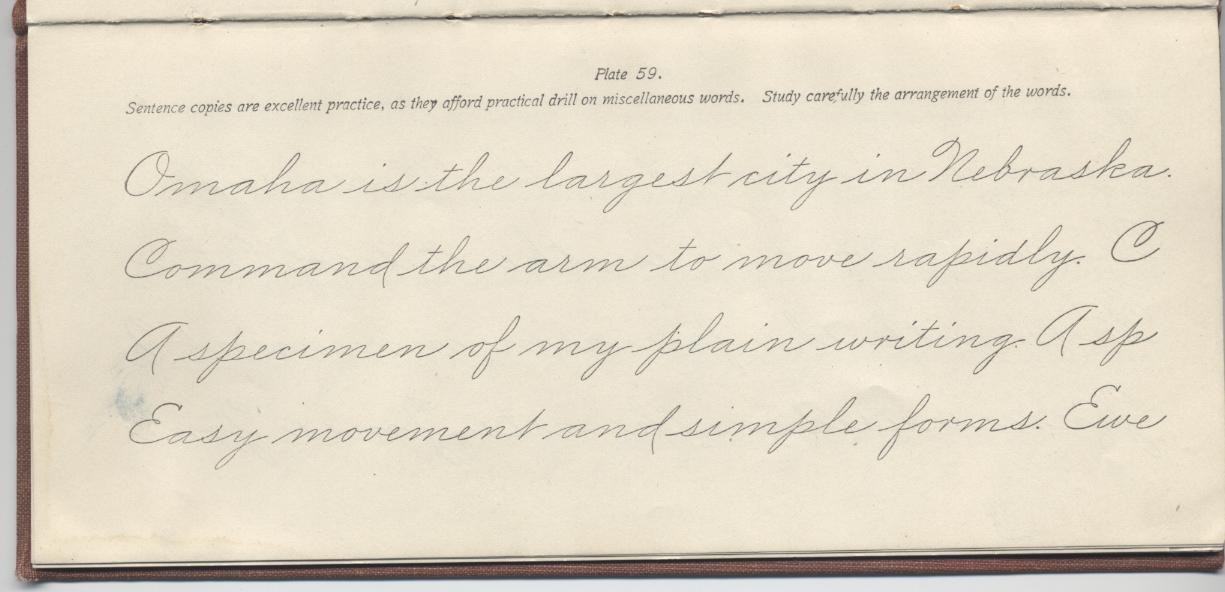 Plate 59.
Sentence copies are excellent practice, as they afford practical drill on miscellaneous words. Study carefully the arrangement of the words.
Omaha is the largest city in Nebraska.
Command the arm to move rapidly. C
A specimen of my plain writing. A sp
Easy movement and simple forms. Ewe